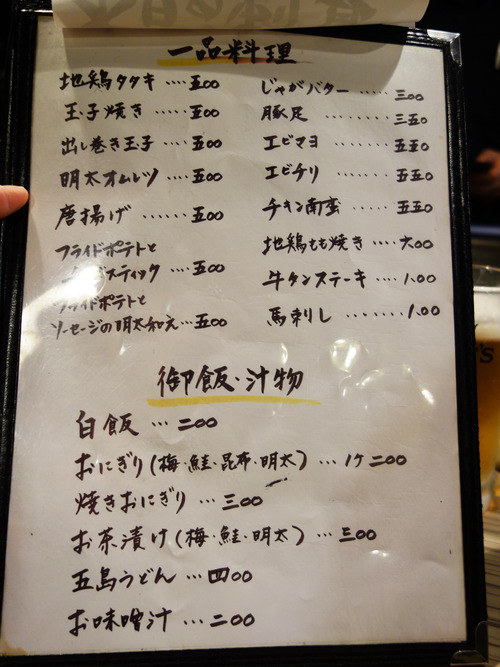 一品料理
地鶏タタキ …. 五00
玉子焼き ….. 五00
出し巻き玉子 …. 五00
明太オムレツ …. 五00
唐揚げ …… 五00
フライドポテトと
スティック …. 五00
フライドポテトと
ソーセージの明太和え… 五00
じゃがバター ….. 三00
豚足 ……… 三五0
エビマヨ ……. 五五0
エビチリ ……. 五五0
チキン南蛮 …… 五五0
地鶏もも焼き …. 六00
牛タンステーキ …. 1.00
馬刺し …….. 1.00
御飯・汁物
白飯 … 二00
おにぎり(梅・鮭・昆布・明太) … 1ケ二00
焼きおにぎり … 三00
お茶漬け(梅・鮭・明太) … 三00
五島うどん … 四00
お味噌汁 … 二00